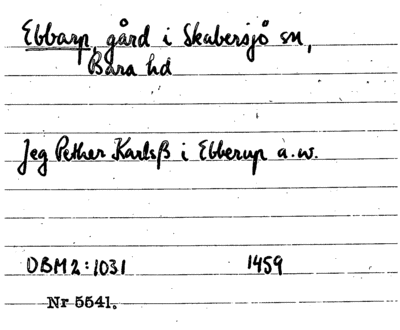 Ebbarp, gård i Skabersjö sn,
Bara hd
Jeg Pether Karlsß i Ebberup a.w.
DBM2:1031 1459
Nr 5541.